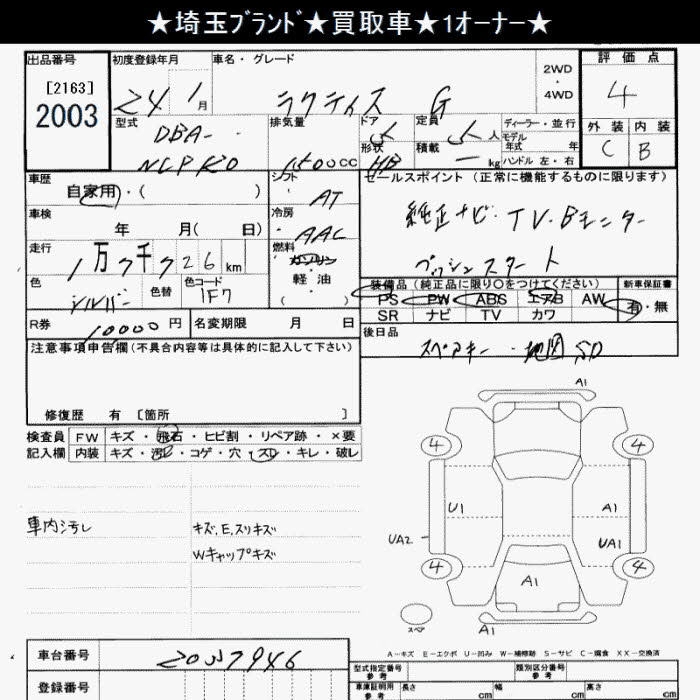 ★埼玉ﾌﾞﾗﾝﾄﾞ★買取車★1オーナー★
出品番号
[2163]
2003
初度登録年月
24 1月
車名・グレード
ラクティス G
2WD
・
4WD
評価点
4
外装 内装
C B
型式
DBA-
排気量
1500cc
ドア
5
形状
HB
定員
5人
積載
ー kg
ディーラー・並行
モデル
年式 年
ハンドル 左・右
車歴
自家用・( )
シフト
AT
セールスポイント (正常に機能するものに限ります)
純正ナビ・TV・Bモニター
プッシュスタート
車検
年 月( 日)
冷房
AAC
走行
1万7千726km
燃料
ガソリン
軽油
( )
色
シルバー
色替
色コード
1F7
装備品 (純正品に限り○をつけてください)
PS PW ABS エアB AW
SR ナビ TV カワ
新車保証書
有・無
R券
10000円
名変期限 月 日
後日品
スペアキー・地図SD
注意事項申告欄 (不具合内容等は具体的に記入して下さい)
修復歴 有 [箇所 ]
検査員
記入欄
FW キズ・飛石・ヒビ割・リペア跡・×要
内装 キズ・汚レ・コゲ・穴・スレ・キレ・破レ
車内汚レ
キズ,E,スリキズ
Wキャップキズ
A1
4 4
U1 A1
UA2 UA1
4 4
A1
スペア
A1
A－キズ E－エクボ U－凹み W－補修跡 S－サビ C－腐食 XX－交換済
車台番号
2007946
登録番号
型式指定番号
参考
類別区分番号
参考
車庫証明用
参考
長さ cm 幅 cm 高さ cm